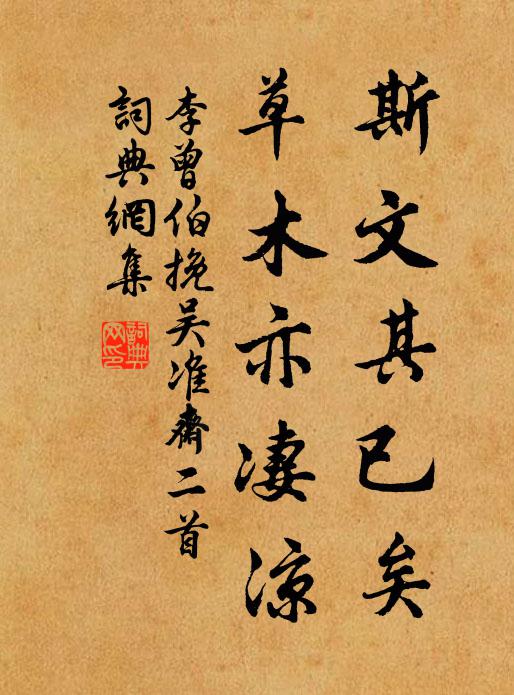 斯文其已矣
草木亦凄涼
李曾伯挽吴准齋二首
詞典網集
詞典网印